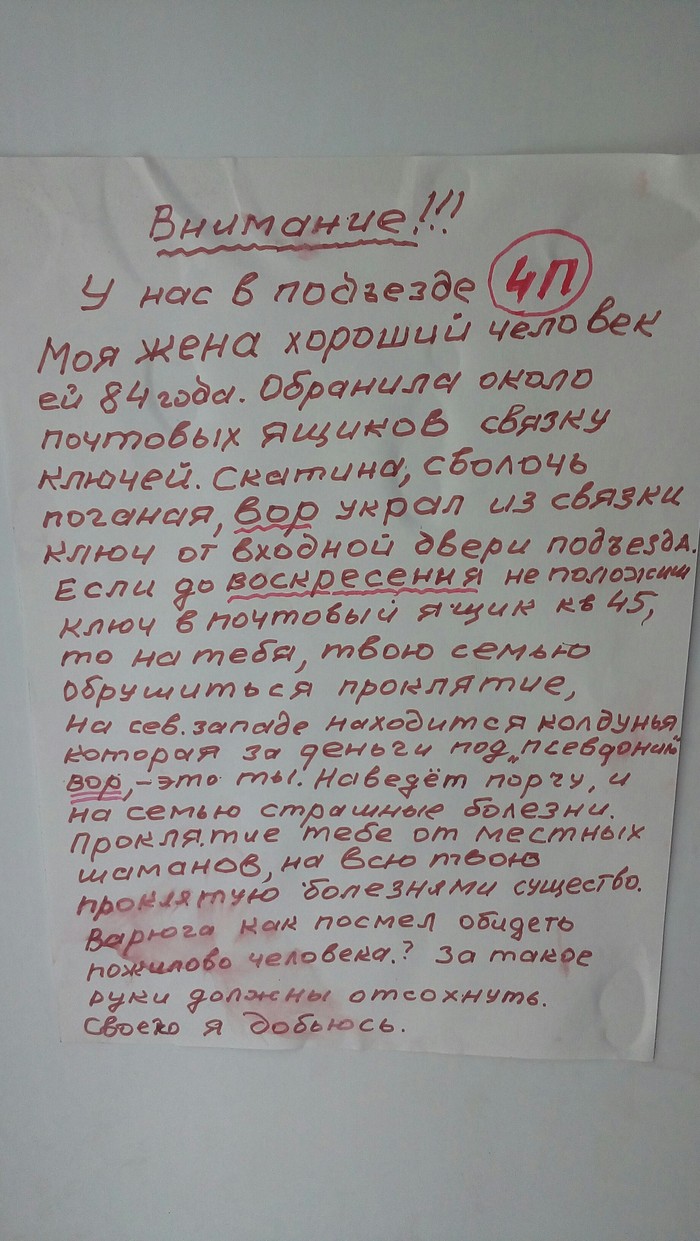 Внимание!!!
У нас в подъезде 4П
Моя жена хороший человек
ей 84 года. Обранила около
почтовых ящиков связку
ключей. Скатина, сволочь
поганая, вор украл из связки
ключ от входной двери подъезда.
Если до воскресения не положиш
ключ в почтовый ящик кв 45,
то на тебя, твою семью
обрушиться проклятие,
на сев. западе находится колдунья
которая за деньги под „псевдоним"
вор, - это ты! Наведёт порчу, и
на семью страшные болезни.
Проклятие тебе от местных
шаманов, на всю твою
проклятую болезнями существо.
Варюга как посмел обидеть
пожилово человека.? За такое
руки должны отсохнуть.
Своего я добьюсь.